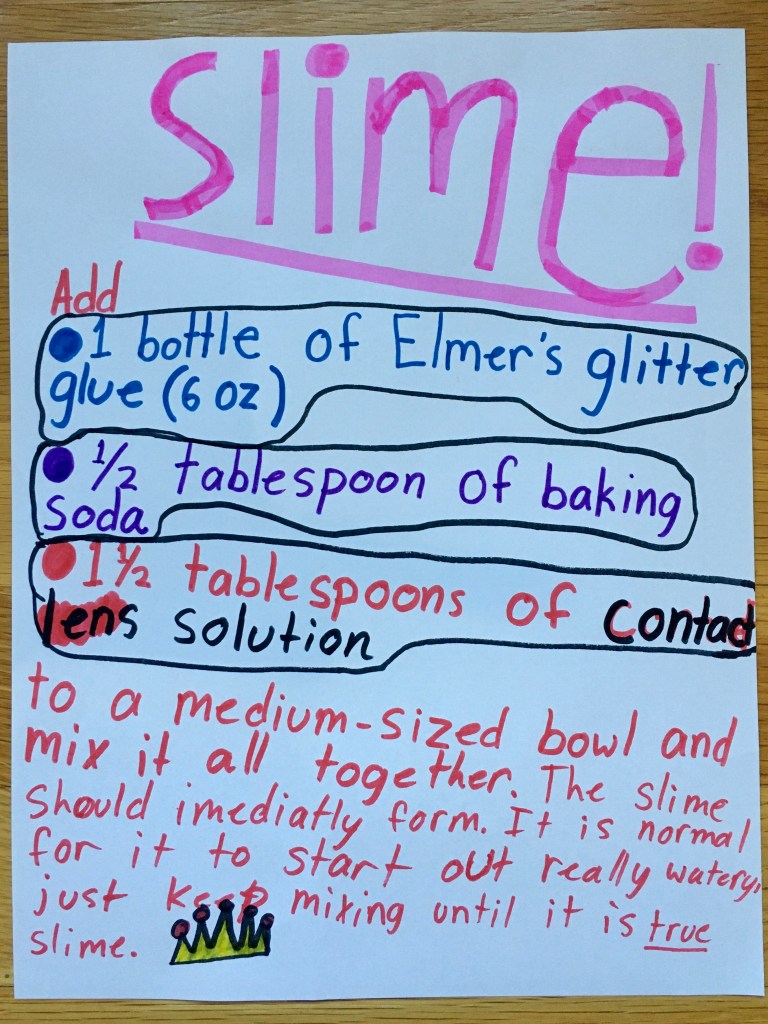 Slime!
Add
1 bottle of Elmer's glitter
glue (6 oz)
1/2 tablespoon of baking
soda
1 1/2 tablespoons of contact
lens solution
to a medium-sized bowl and
mix it all together. The slime
should imediatly form. It is normal
for it to start out really watery,
just keep mixing until it is true
slime.